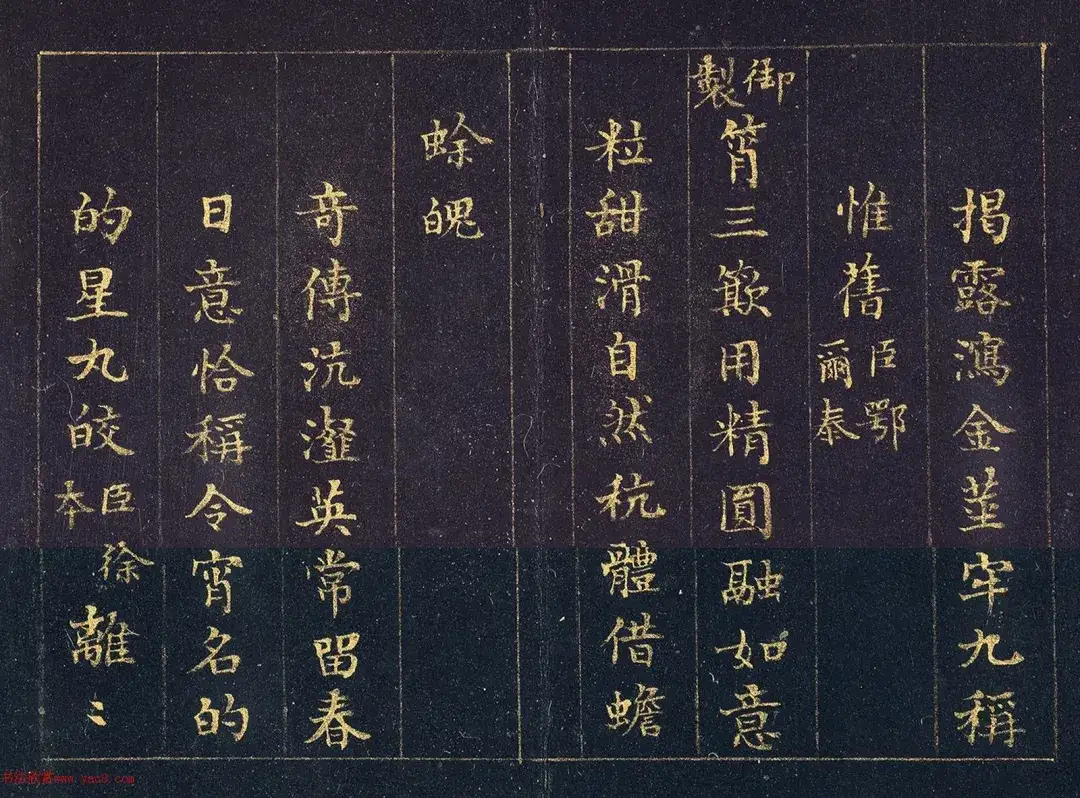 揭露瀉金莖牢九稱
惟舊臣鄂爾泰
御製筲三用精圓融如意
粒甜滑自然秔體借蟾
蜍魄
奇傳沆瀣英常留春
日意恰稱令宵名的
的星九皎臣徐本離〻
书法欣赏www.yac8.com